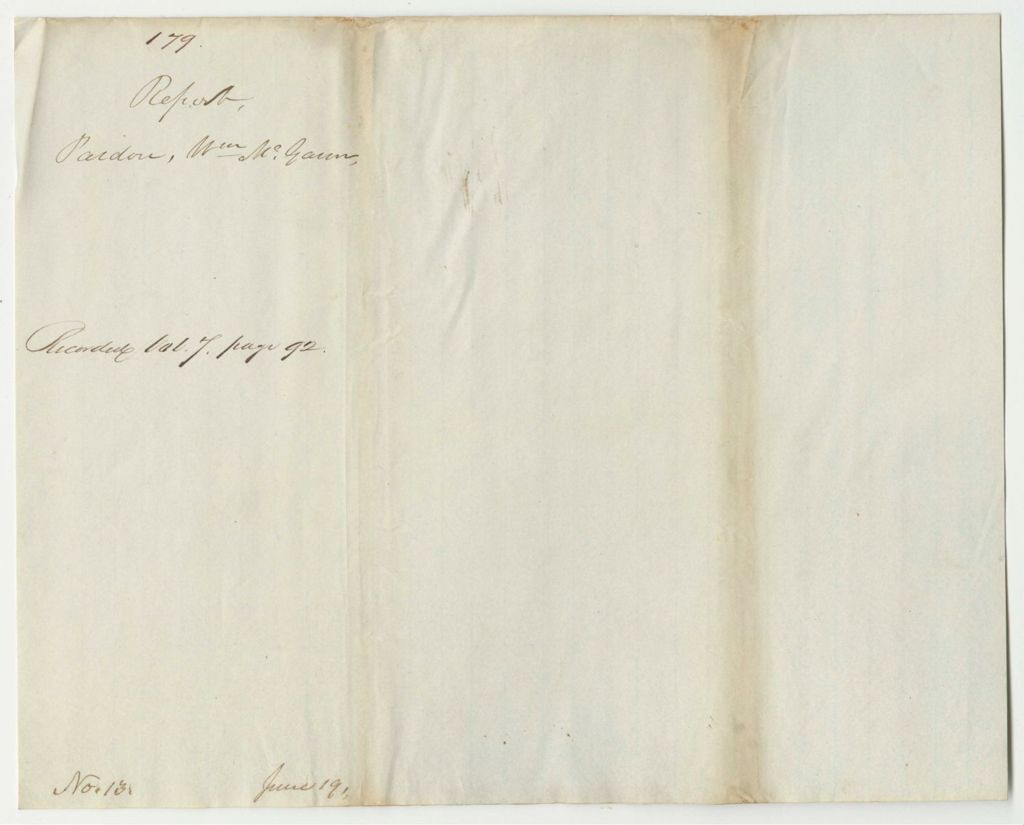 179.
Report,
Pardon, Wm Mc. Gann,
Recorded Vol. 7. page 92.
No. 13. June 19,